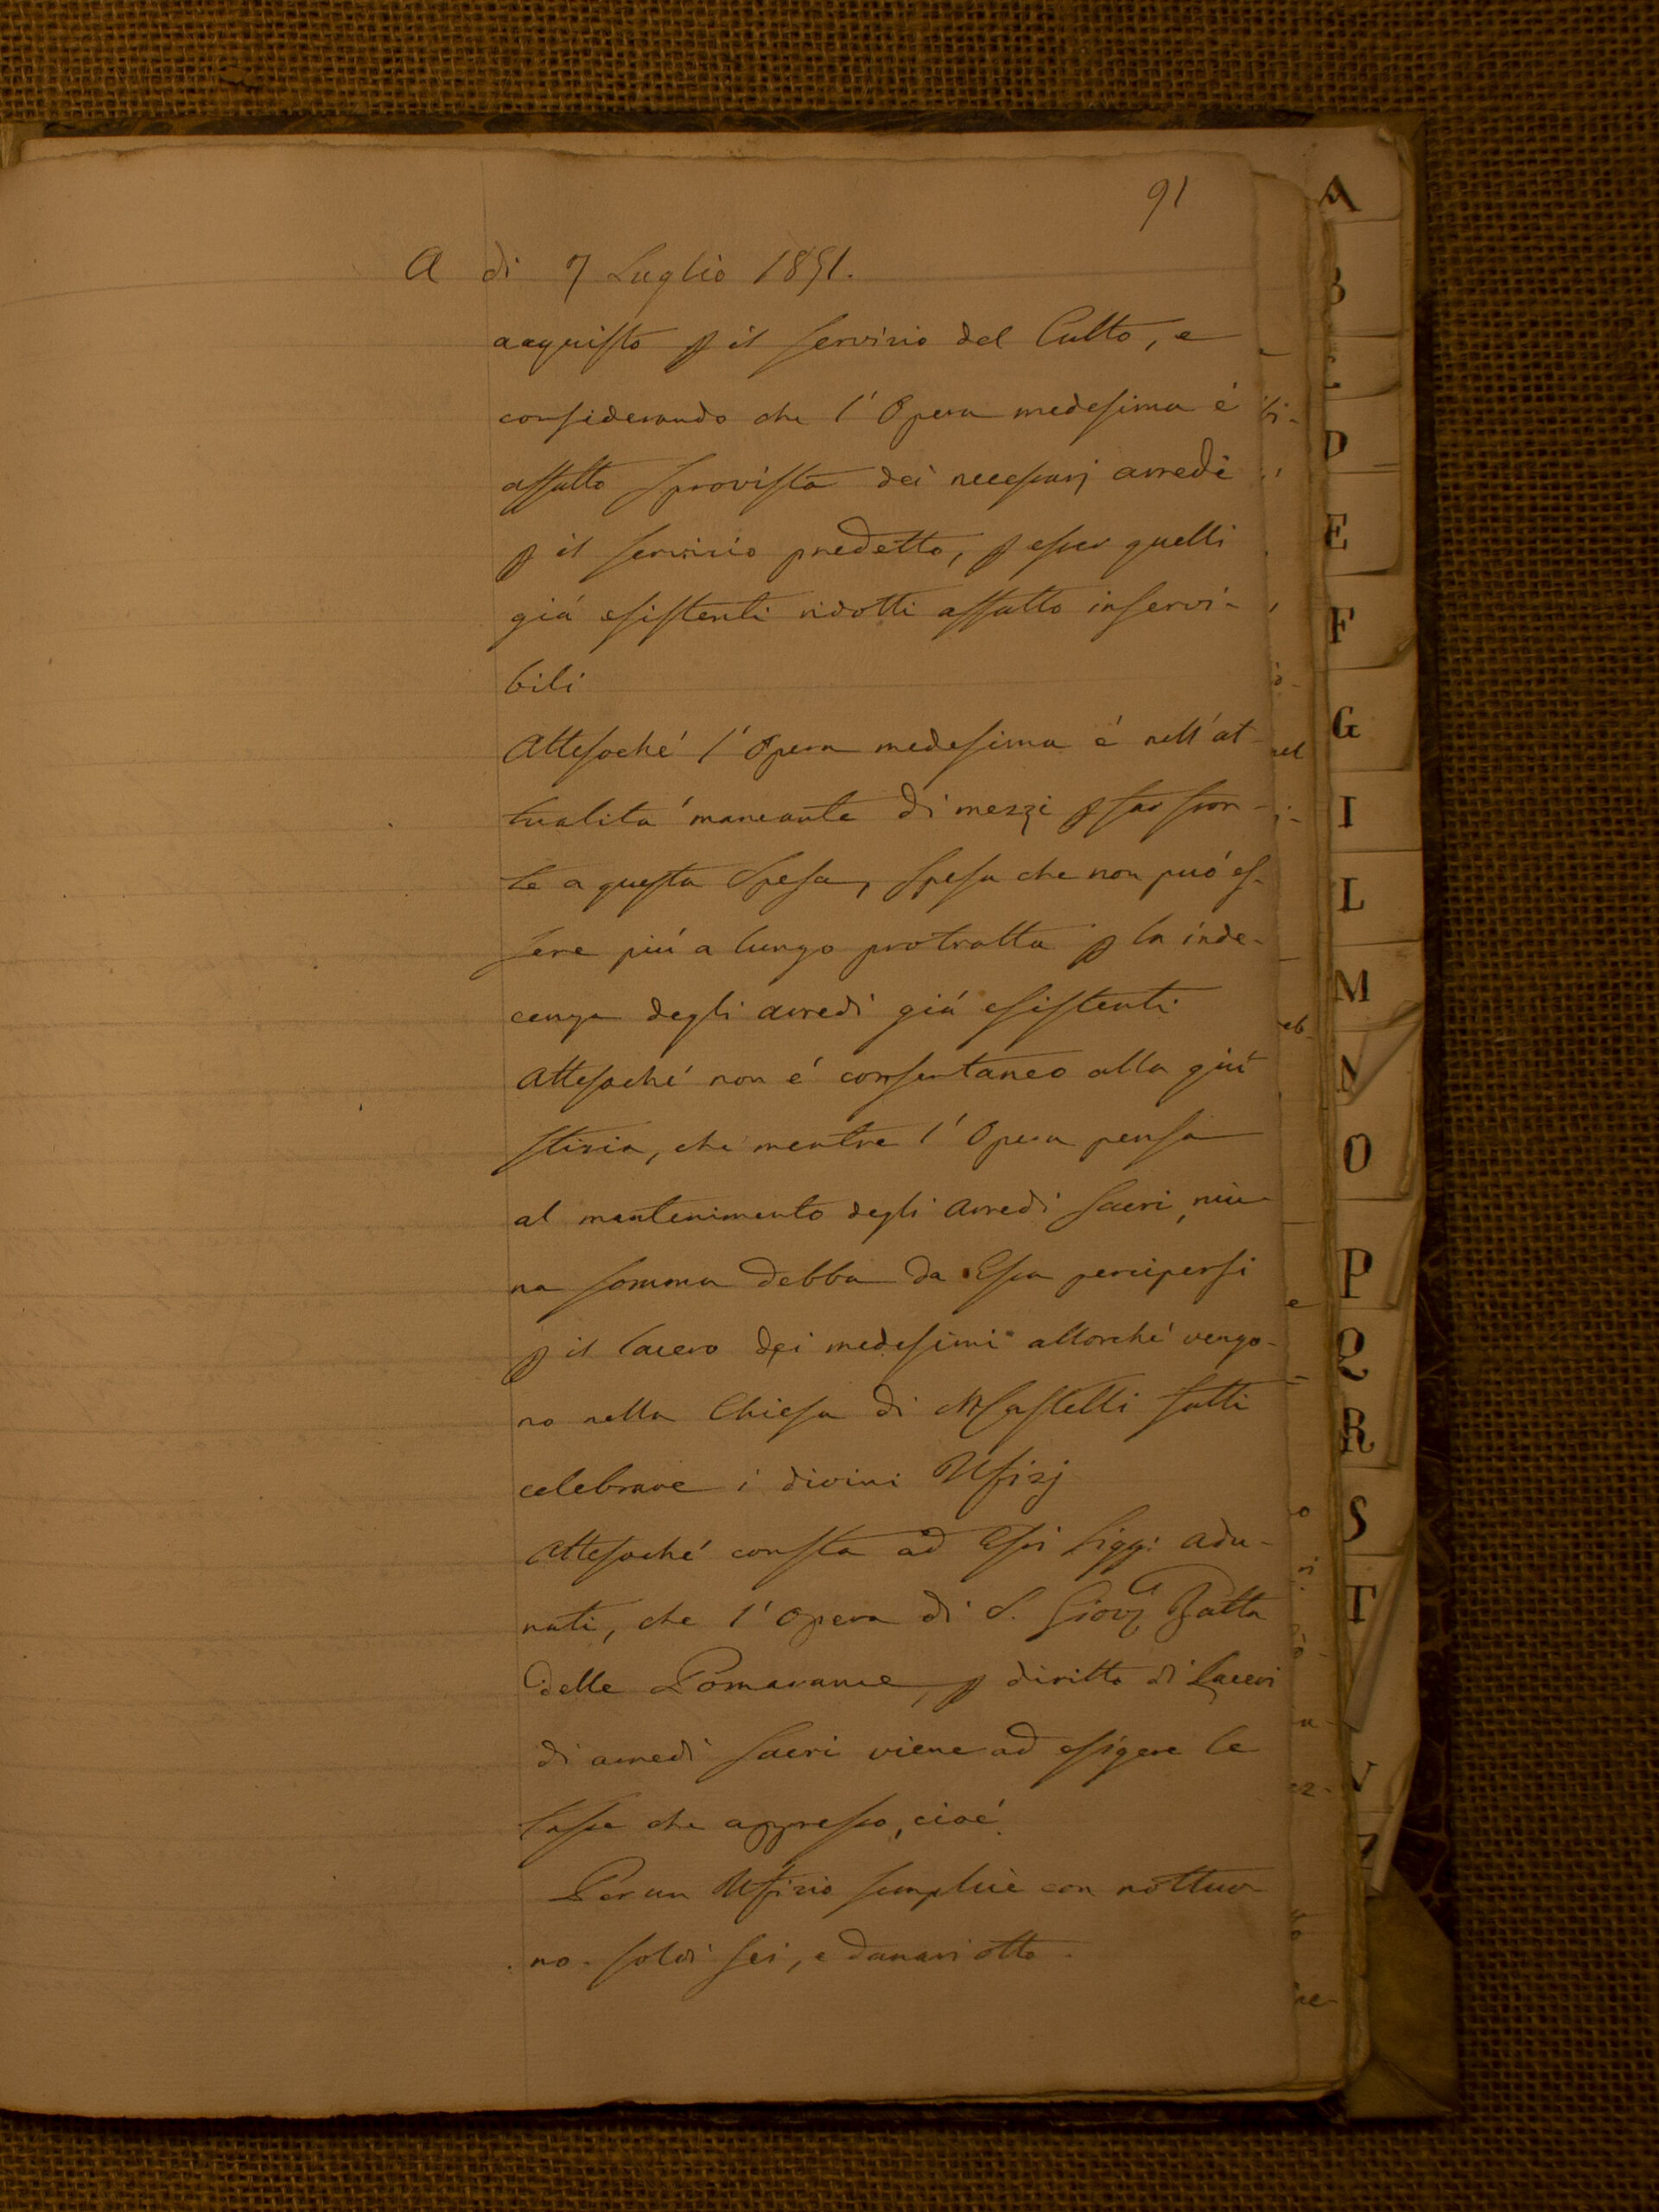 91
A dì 7 Luglio 1851.
acquisto p il servizio del Culto, e
considerando che l'Opera medesima é
affatto sprovista dei necessarj arredi
p il servizio predetto, p esser quelli
giá esistenti ridotti affatto inservi-
bili
Attesoché l'Opera medesima é nell'at-
tualitá mancante di mezzi p far fron-
te a questa Spesa, spesa che non puó es-
sere piú a lungo protratta p la inde-
cenza degli arredi giá esistenti
Attesoché non é consentaneo alla giu-
stizia, che mentre l'Opera pensa
al mantenimento degli arredi Sacri, niu-
na somma debba da Essa percipersi
p il lacero dei medesimi allorché vengo-
no nella Chiesa di MCastelli fatti
celebrare i divini Ufizj
Attesoché consta ad Essi Sigg: adu-
nati, che l'Opera di S. Giov: Batta
delle Pomarance, p diritto di Laceri
di arredi Sacri viene ad esigere le
tasse che appresso, cioé
Per un Ufizio semplice con nottur-
no. soldi sei, e danari otto.
A
B
C
D
E
F
G
I
L
M
N
O
P
Q
R
S
T
V
Z